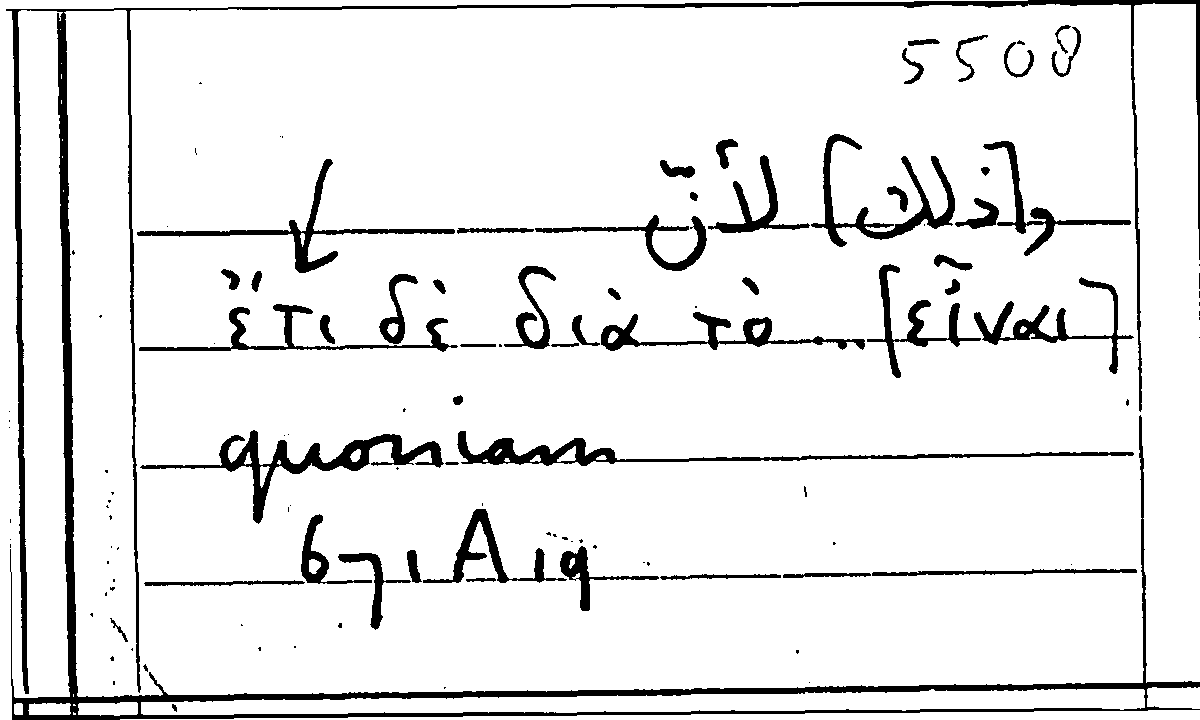 5508
[ذلك], لأنّ
↓
ἔτι δὲ διὰ τὸ ... [εἶναι]
quoniam
671 A 19